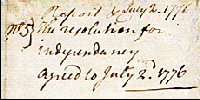 Report July 2. 1776
No 5 } The resolution for
independancy
agreed to July 2d. 1776